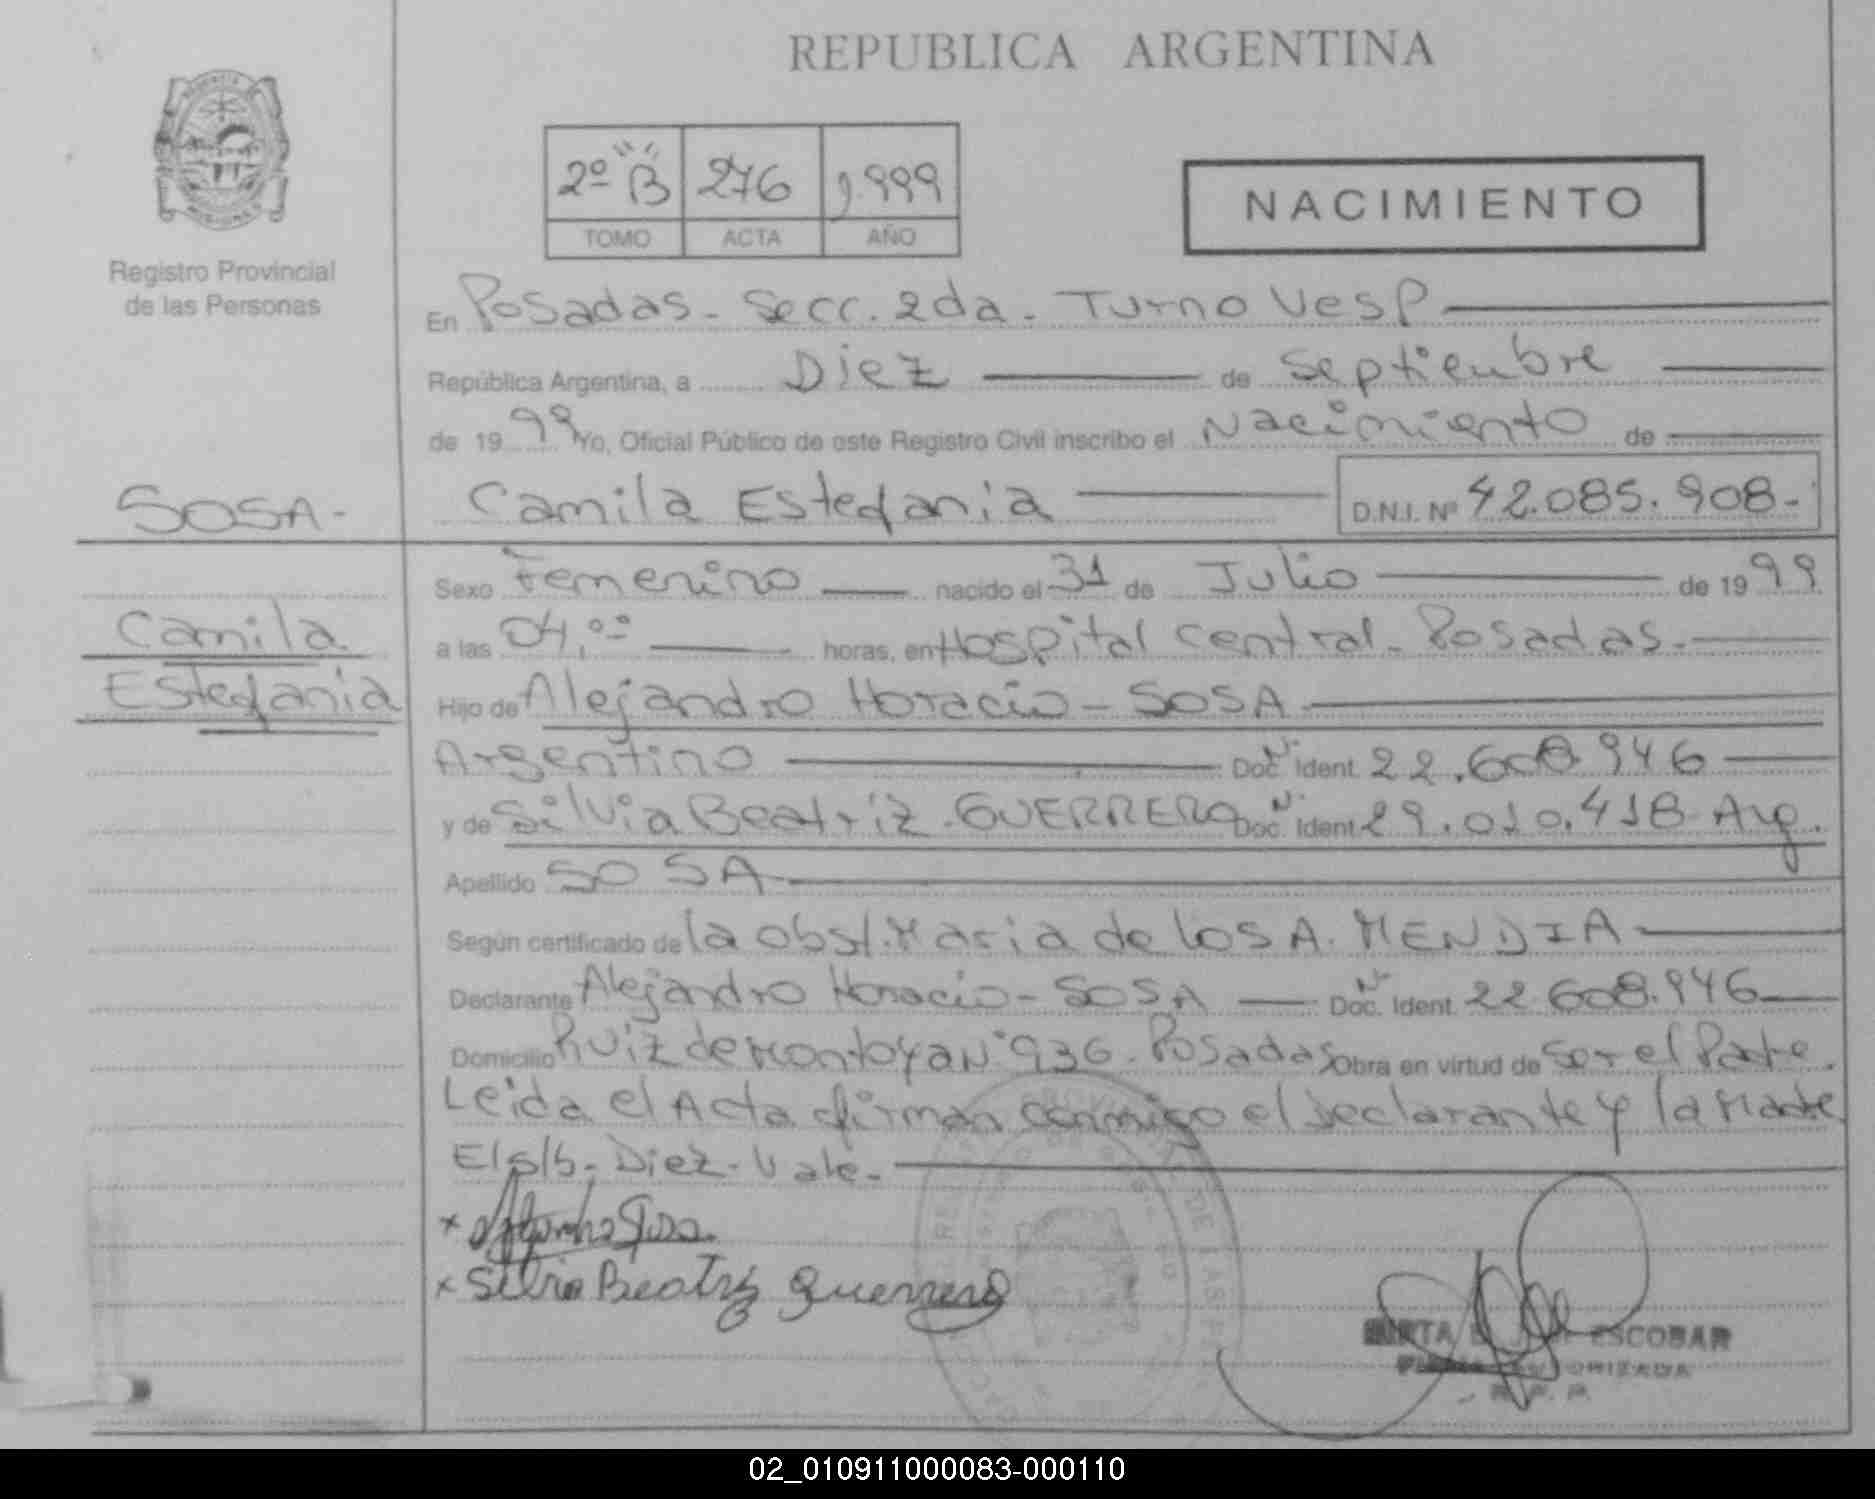 REPUBLICA ARGENTINA
2º B 276 1.999
TOMO ACTA AÑO
NACIMIENTO
Registro Provincial
de las Personas
En Posadas - Secc. 2da. Turno Vesp
República Argentina, a Diez de Septiembre
de 1999 Yo, Oficial Público de este Registro Civil inscribo el Nacimiento de
SOSA - Camila Estefania D.N.I. Nº 42.085.908-
Sexo Femenino nacido el 31 de Julio de 1999
Camila a las 04,ºº horas, en Hospital Central - Posadas.-
Estefania Hijo de Alejandro Horacio - SOSA
Argentino Doc. Nº Ident. 22.608.946
y de Silvia Beatriz - GUERRERO Doc. Nº Ident. 29.010.418 Arg.
Apellido SOSA
Según certificado de la obst. Maria de los A. MENDIA
Declarante Alejandro Horacio - SOSA Doc. Nº Ident. 22.608.946
Domicilio Ruiz de Montoya Nº 936 - Posadas Obra en virtud de ser el Padre.
Leida el Acta firman conmigo el declarante y la Madre
El s/b. Diez. Vale.-
x Sosa.
x Silvia Beatriz Guerrero
ESCOBAR
02_010911000083-000110